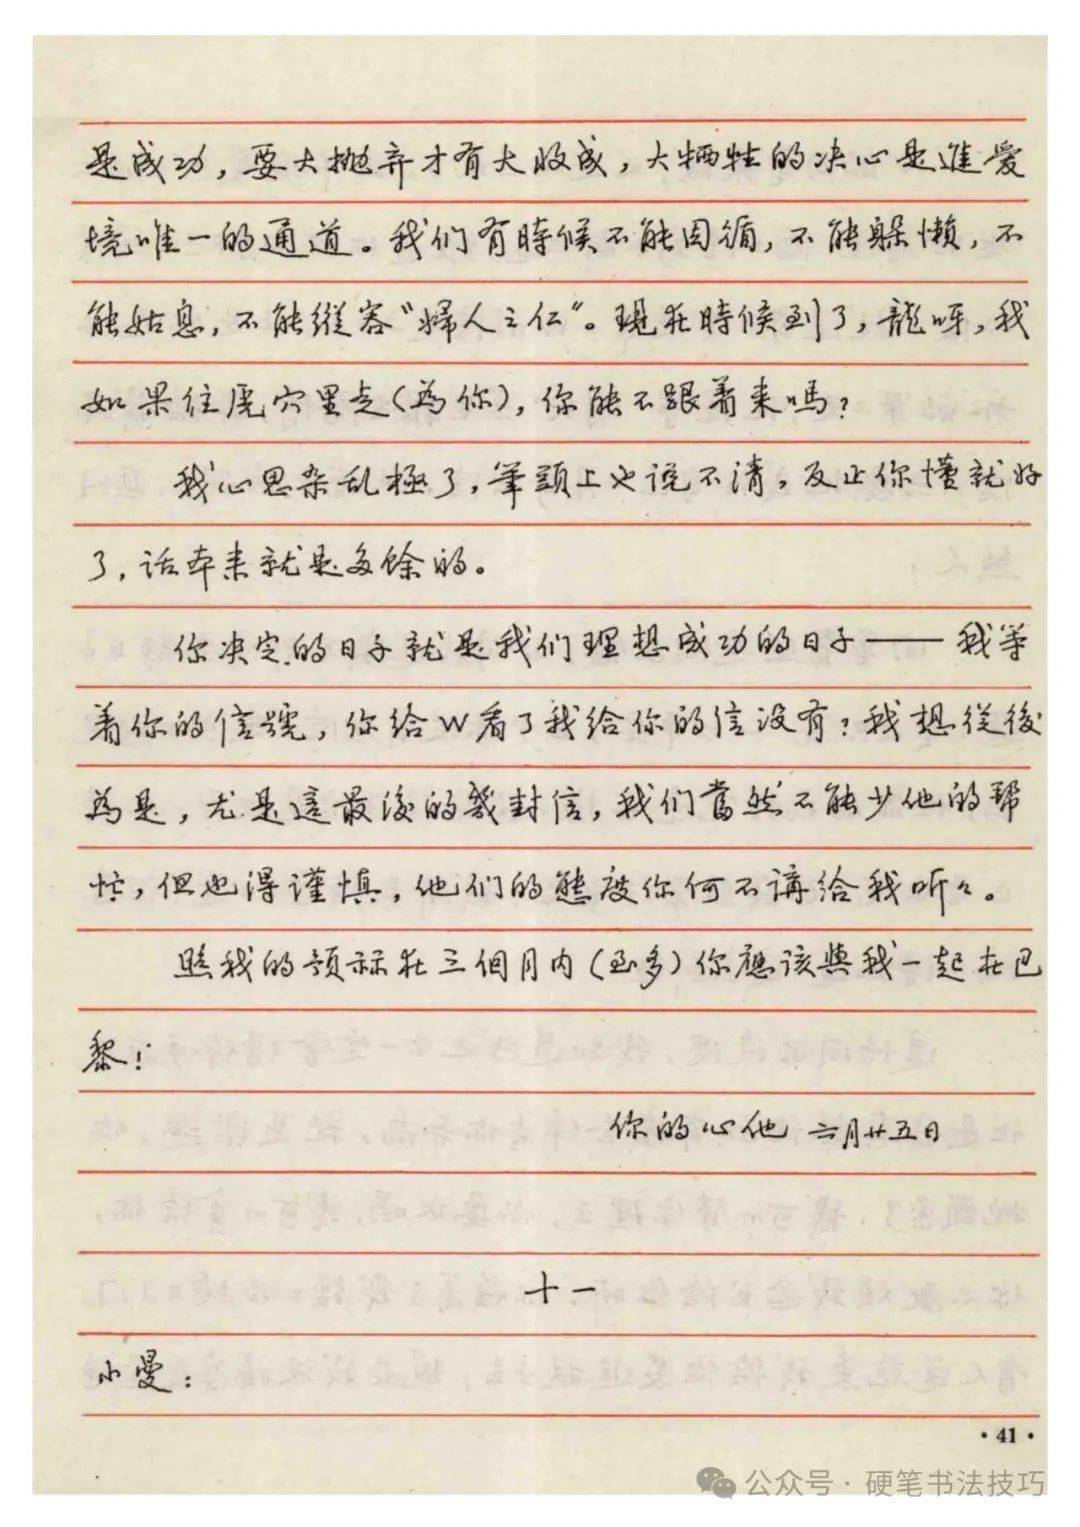 是成功，要大抛弃才有大收成，大牺牲的决心是進愛
境唯一的通道。我们有時候不能因循，不能躲懒，不
能姑息，不能縱容“婦人之仁”。現在時候到了，龍呀，我
如果往虎穴里走（為你），你能不跟着来嗎？
我心思杂乱極了，筆頭上也说不清，反正你懂就好
了，话本来就是多馀的。
你决定的日子就是我们理想成功的日子——我等
着你的信號，你给W看了我给你的信没有？我想從後
為是，尤是這最後的幾封信，我们當然不能少他的帮
忙，但也得谨慎，他们的態度你何不講给我听々。
照我的预标在三個月内（至多）你應该與我一起在巴
黎！
你的心他 六月廿五日
十一
小曼：
·41·
公众号·硬笔书法技巧